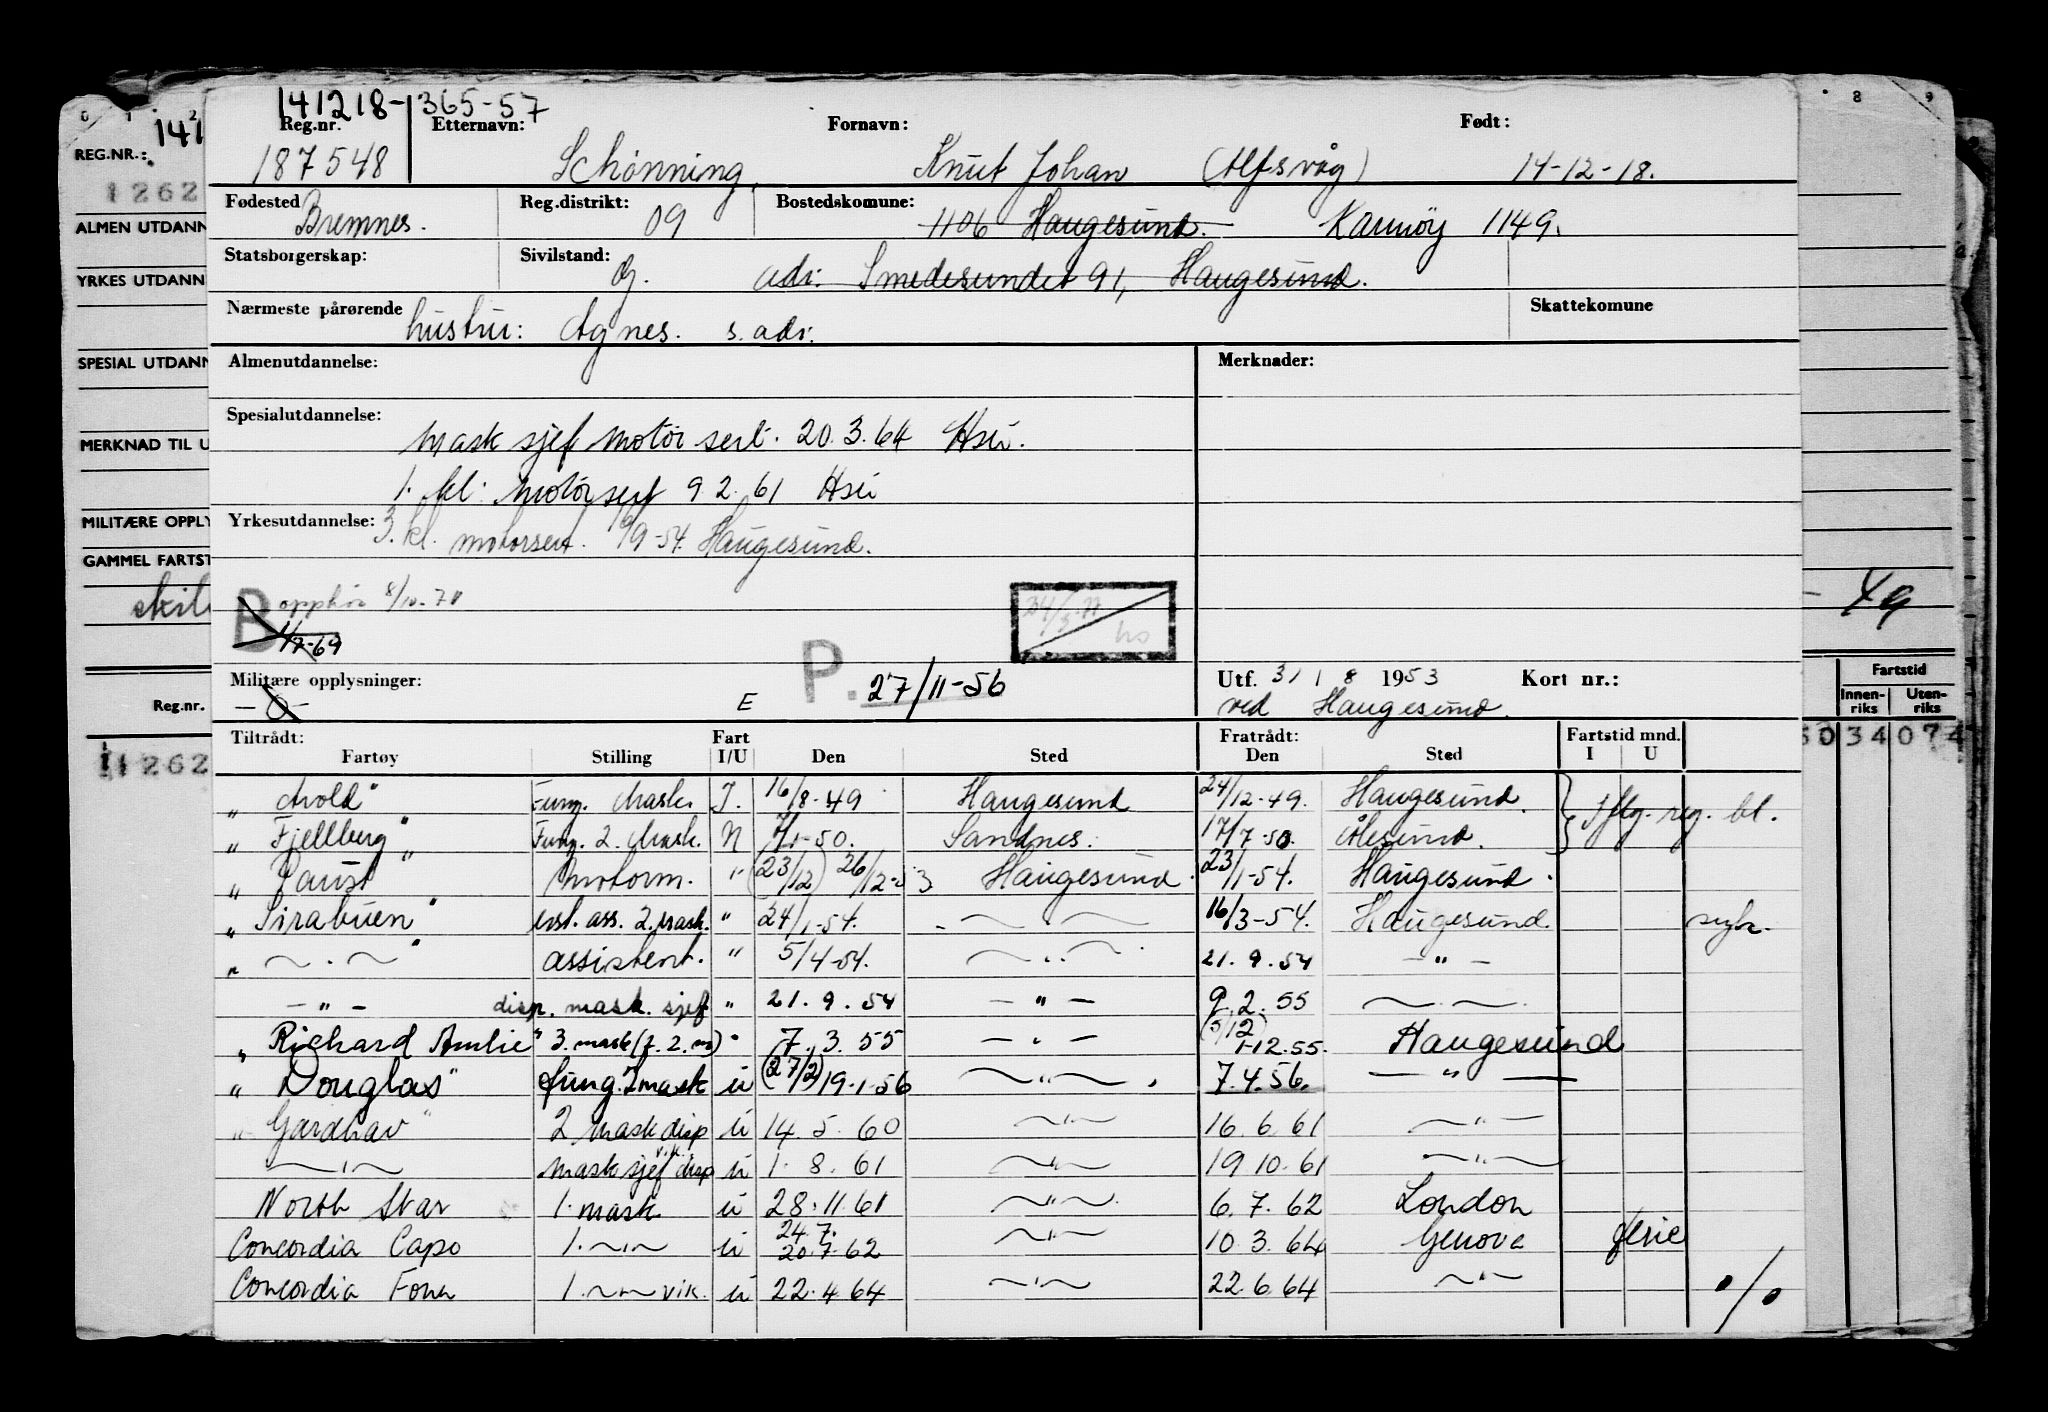 141218-365-57
Reg.nr. Etternavn: Fornavn: Født:
187548 Schønning, Knut Johan (Alfsvåg) 14-12-18.
Fødested Bremnes. Reg.distrikt: 09 Bostedskomune: 1106 Haugesund. Karmöy 1149.
Statsborgerskap: Sivilstand: g. adr: Smedesundet 91, Haugesund.
Nærmeste pårørende hustru: Agnes. s. adr. Skattekomune
Almenutdannelse: Merknader:
Spesialutdannelse:
Mask sjef motor sert. 20.3.64 Hsu.
1. kl. motor sert 9.2.61 Hsu
Yrkesutdannelse: 3. kl. motorsert. 9-54. Haugesund.
B opphør 8/10-70
1/7-69
P. 27/11-56
Militære opplysninger: E Utf. 31/8 1953 Kort nr.:
ved Haugesund.
Tiltrådt: Fart Fratrådt: Fartstid mnd.
Fartøy Stilling I/U Den Sted Den Sted I U
" Avold" Fung. Mask. I. 16/8-49 Haugesund 24/12-49. Haugesund.
" Fjellberg" Fung. 2. Mask. N 7/1-50. Sandnes. 17/7-50. Ålesund. iflg. reg. bl.
" Faust" Motorm. " (23/12) 26/12-53 Haugesund. 23/1-54. Haugesund.
" Sirabuen" ass. 2. mask. " 24/1-54. 16/3-54. Haugesund. syk.
" assistent. " 5/4-54. 21.9.54 - " -
- " - disp. mask. sjef " 21.9.54 - " - 9.2.55
" Richard Amlie" 3. mask (f. 2. m) " 7.3.55 - " - (5/12) 1-12.55. Haugesund
" Douglas" fung. 2 mask u (27/2) 19-1-56 7.4.56. - " -
" Gardhav" 2 mask disp u 14.5.60 16.6.61
mask sjef vik. disp u 1.8.61 19.10.61
North Star 1. mask u 28.11.61 6.7.62 London
Concordia Capo 1. u 24.7. 20.7.62 10.3.64 Genova ferie
Concordia Fonn 1. vik. u 22.4.64 22.6.64
·/·
0 1 2
141
REG.NR.:
1262
ALMEN UTDANN
YRKES UTDANN
SPESIAL UTDANN
MERKNAD TIL U
MILITÆRE OPPLY
GAMMEL FARTST
Reg.nr.
11262
8 9
49
Fartstid
Innen-riks Uten-riks
34074